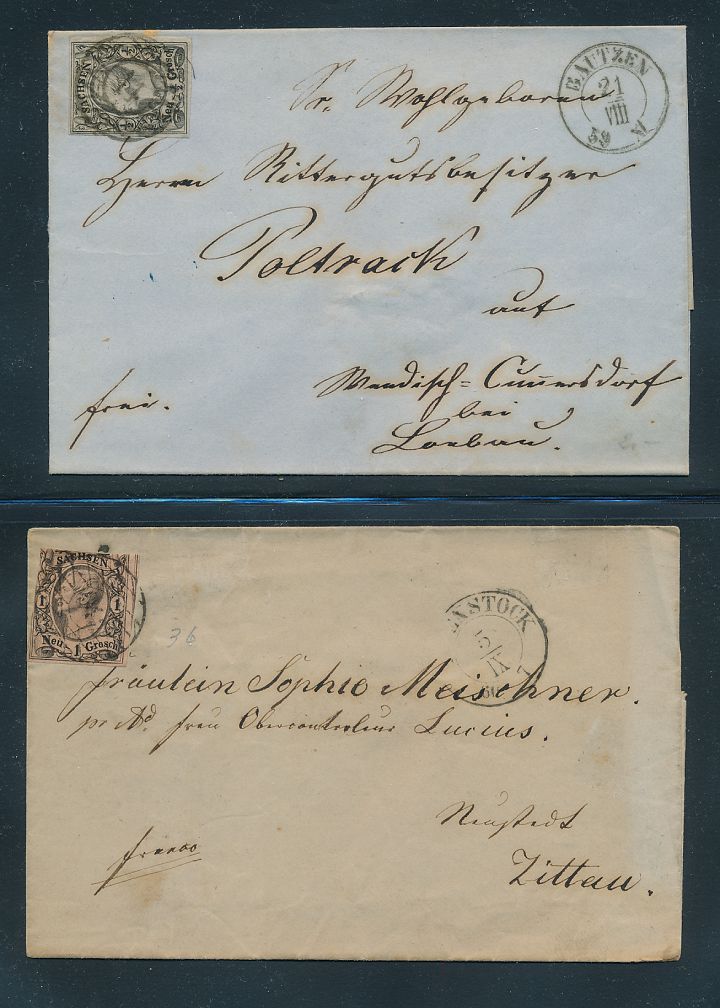 SACHSEN
½
½
½
½
BAUTZEN
21
VIII
59
Sr. Wohlgeboren
Herrn Rittergutsbesitzer
Poltrack
auf
Wendisch=Cunnersdorf
bei
Loebau.
frei.
2,-
SACHSEN
1 1
Neu 1 Grosch
36
ENSTOCK
5
IX
Fräulein Sophie Meischner.
pr Ad. Frau Obercontroleur Lucius.
Neustadt
Zittau.
franco